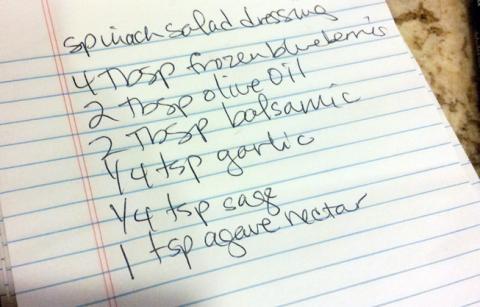 spinach salad dressing
4 Tbsp frozen blueberries
2 Tbsp olive Oil
2 Tbsp balsamic
1/4 tsp garlic
1/4 tsp sage
1 tsp agave nectar